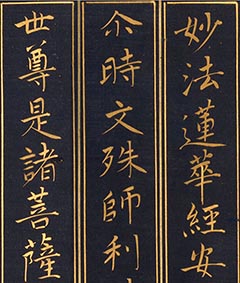 妙法蓮華經安
尒時文殊師利
世尊是諸菩薩